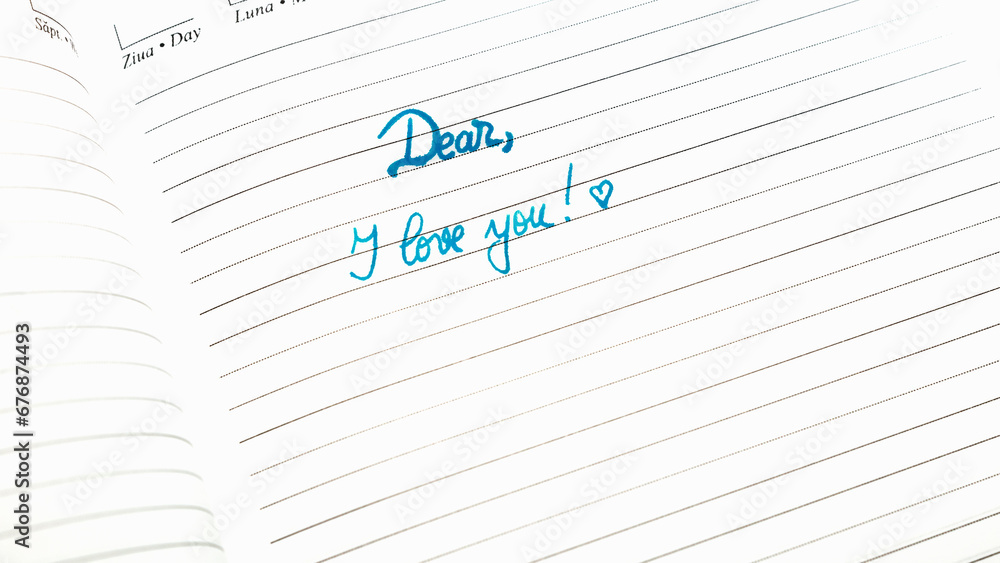 Săpt. •
Ziua • Day
Luna •
Dear,
I love you! ♡
Adobe Stock | #676874493